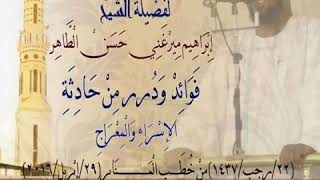 لفضيلة الشيخ
إِبْرَاهِيم مِيرْغَنِي حَسَنْ الطَّاهِر
فَوَائِدْ وَدُرَر مِنْ حَادِثَةِ
الإِسْرَاءِ وَالْمِعْرَاج
(٢٢/رجب/١٤٣٧) مِنْ خُطَبِ الْمَنَابِر (٢٩/أبريل/٢٠١٦)